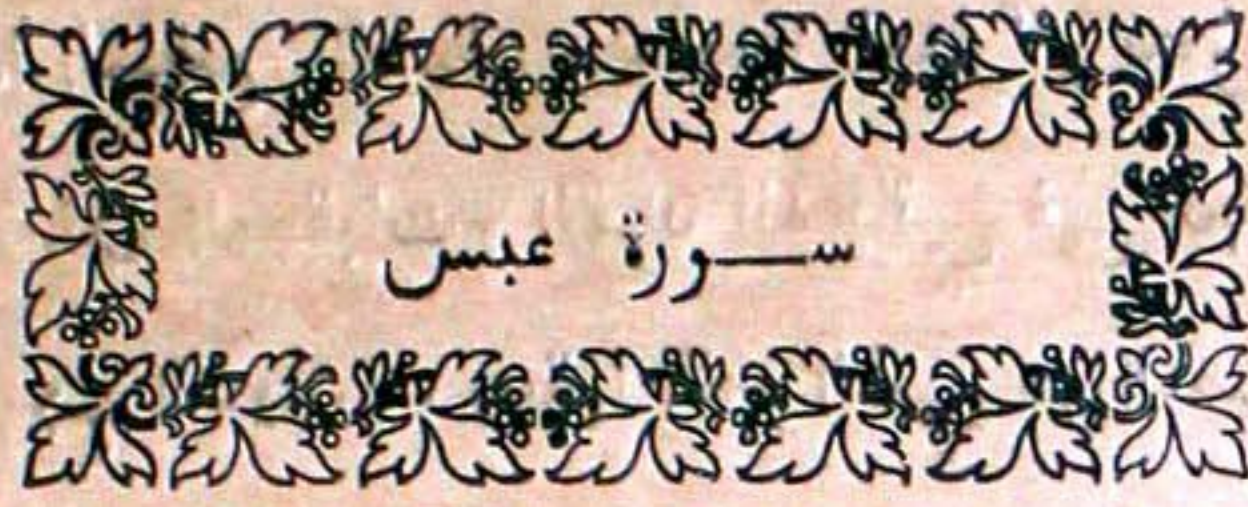 سورة عبس